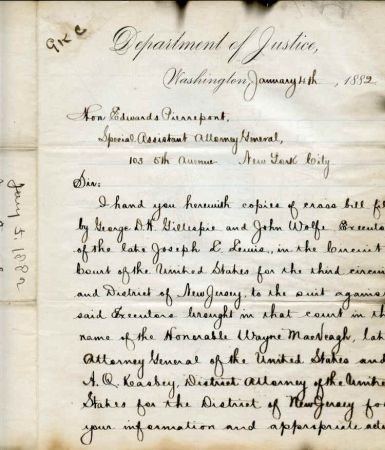 GKC
Department of Justice,
Washington, January 4th, 1882
Hon Edwards Pierrepont,
Special Assistant Attorney General,
103 5th Avenue New York City.
Sir:
I hand you herewith copies of cross bill fil
by George D.H. Gillespie and John Wolfe. Executo
of the late Joseph L Lewis, in the Circuit
Court of the United States for the third circui
and District of New Jersey, to the suit agains
said Executors brought in that court in th
name of the Honorable Wayne MacVeagh, lat
Attorney General of the United States and
A. Q. Kasbey, District Attorney of the Unite
States for the District of New Jersey fo
your information and appropriate acti
Jany 5 1882